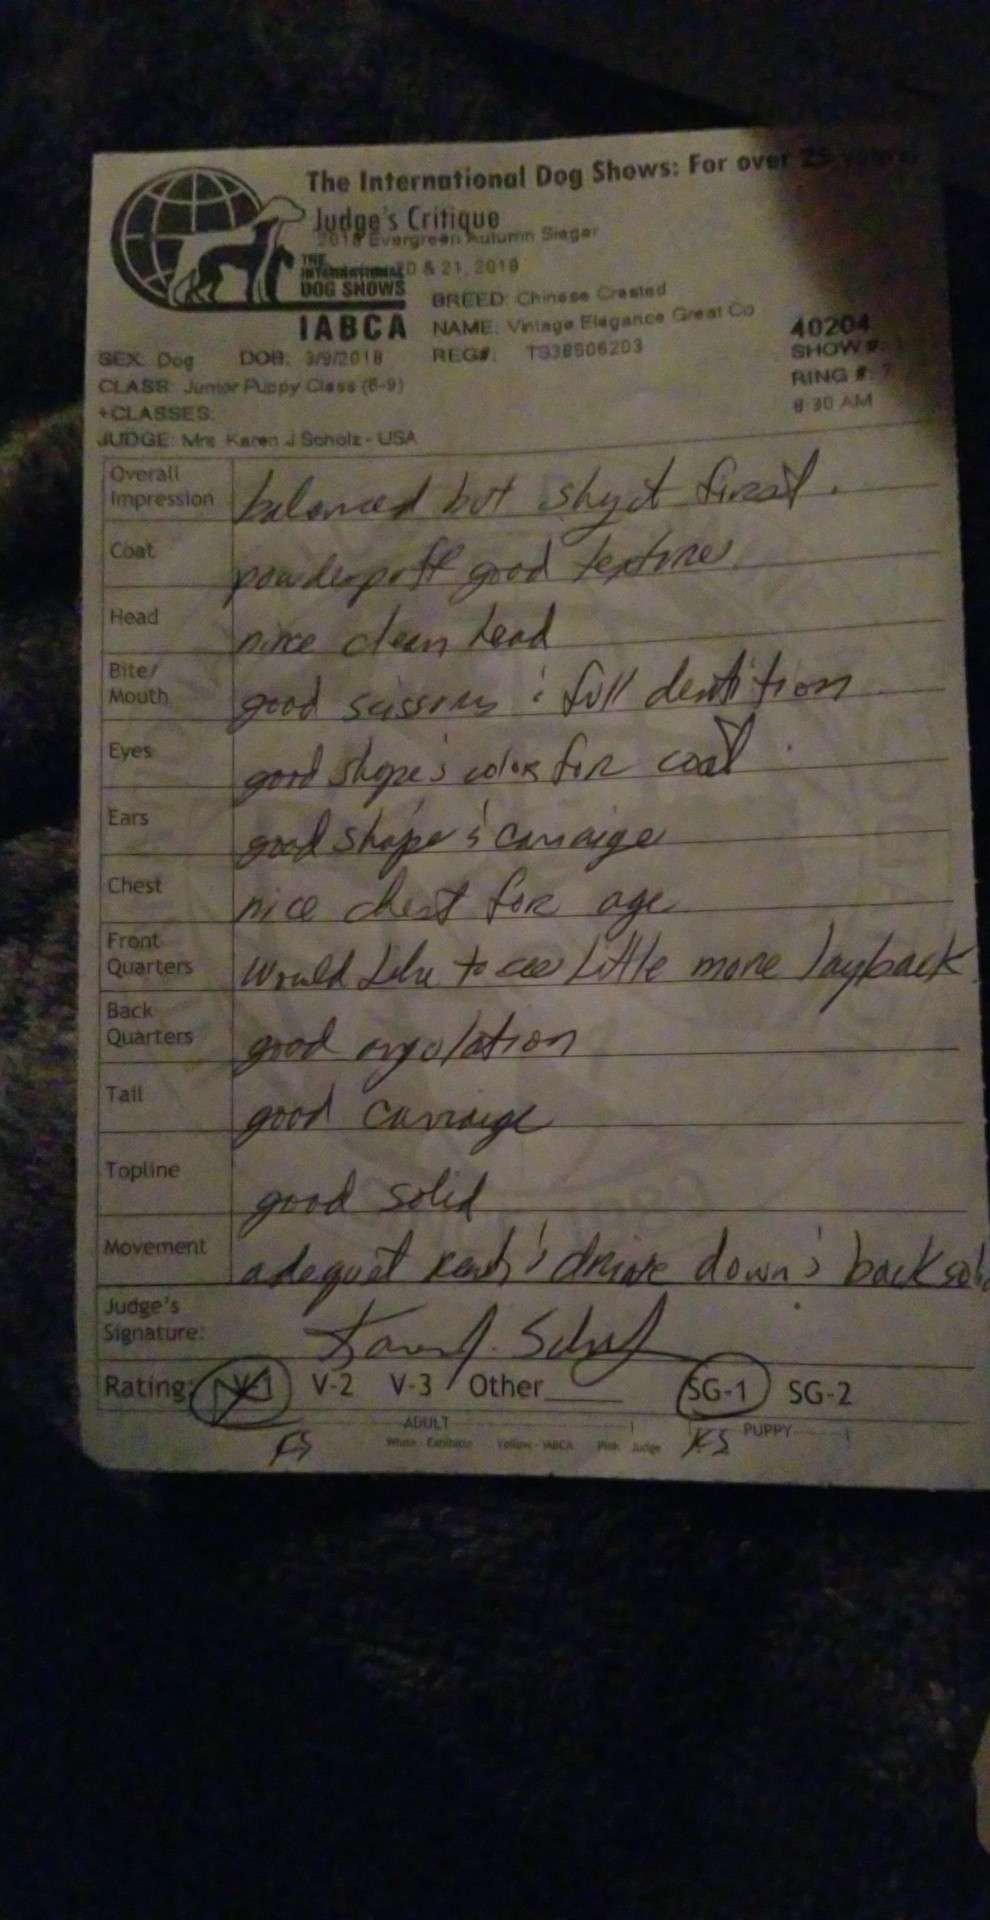 The International Dog Shows: For over 25 years
Judge's Critique
2018 Evergreen Autumn Sieger
20 & 21, 2018
THE INTERNATIONAL DOG SHOWS
IABCA
BREED: Chinese Crested
NAME: Vintage Elegance Great Co
40204
SEX: Dog DOB: 3/9/2018 REG#: TS38606203 SHOW #: 1
CLASS: Junior Puppy Class (6-9) RING #: 7
+CLASSES: 8:30 AM
JUDGE: Mrs Karen J Scholz - USA
Overall Impression balanced but shy at first.
Coat powderpuff good texture
Head nice clean head
Bite/Mouth good scissors & full dentition
Eyes good shape & color for coat
Ears good shape & carraige
Chest nice chest for age
Front Quarters would like to see little more layback
Back Quarters good angulation
Tail good carraige
Topline good solid
Movement adequat reach & drive down & back
Judge's Signature:
Rating: V-1 V-2 V-3 Other SG-1 SG-2
ADULT PUPPY
KS White - Exhibitor Yellow - IABCA Pink - Judge KS